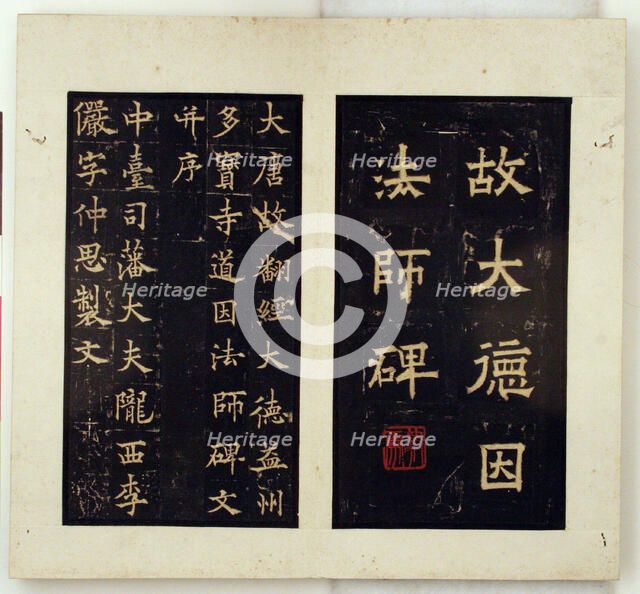 故大德因
法師碑
大唐故翻經大德益州
多寶寺道因法師碑文
并序
中臺司藩大夫隴西李
儼字仲思製文
Heritage
Heritage
Heritage
Heritage
Heritage
Heritage
Heritage
Heritage
Heritage